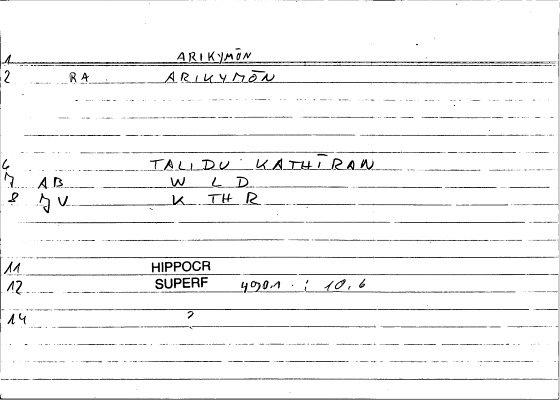 1 ARIKYMŌN
2 RA ARIKYMŌN
6 TALIDU KATHĪRAN
7 AB W L D
8 JV K TH R
11 HIPPOCR
12 SUPERF : 10,6
14 ?